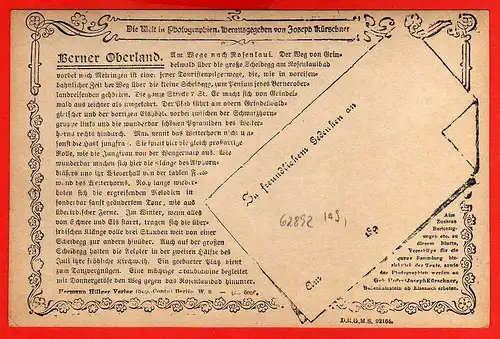 Die Welt in Photographien. Herausgegeben von Joseph Kürschner
Berner Oberland.
Am Wege nach Rosenlaui. Der Weg von Grin-
delwald über die große Scheidegg am Rosenlauibad
vorbei nach Meiringen ist eine jener Touristenpilgerwege, die, wie in voreisen-
bahnlicher Zeit der Weg über die kleine Scheidegg, zum Pensum jedes Berneober-
landreisenden gehörten. Die ganze Strecke 7 St. Er macht sich von Grindel-
wald aus leichter als umgekehrt. Der Pfad führt am obern Grindelwald-
gletscher und der dortigen zwischen der Schwarzhorn-
gruppe links und die wunderbar schönen Pyramiden des Wetter-
horns rechts hindurch. Man nennt das Wetterhorn nicht
die Hasl jungfrau. Sie spielt hier die gleich großartige
Rolle, wie die Jungfrau von der Wengernalp aus. Wie
wunderbar machen sich hier die Klänge des Alphorn-
bläsers und ihr Wiederhall von der kahlen
wand des Wetterhorns. Noch lange wieder-
holen sich die ergreifenden Melodien in
sonderbar sanft geänderten Tone, wie aus
überirdischer Ferne. Im Winter, wenn alles
von Schnee und Eis starrt, tragen sich die über-
irdischen Klänge volle drei Stunden weit von einer
Scheidegg zur andern hinüber. Auch auf der großen
Scheidegg halten die Aelpler in der zweiten Hälfte des
Juli ihre fröhliche Kirchweih. Ein geebneter Platz dient
zum Tanzvergnügen. Eine mächtige Staublawine begleitet
mit Donnergetöse den Weg gegen das Rosenlauibad hinunter.
Hermann Hillger Verlag Berlin W. 9
In freundlichem Gedenken an
62892
189
Alle
Zusätze
Berichtig-
ungen etc. zu
diesem Blatte,
Vorschläge für die
ganze Sammlung hin-
sichtlich des Texts, sowie
der Photographien werden an
Geh. Hofrat Joseph Kürschner,
ob Eisenach erbeten.
D.R.G.M.S. 92164.